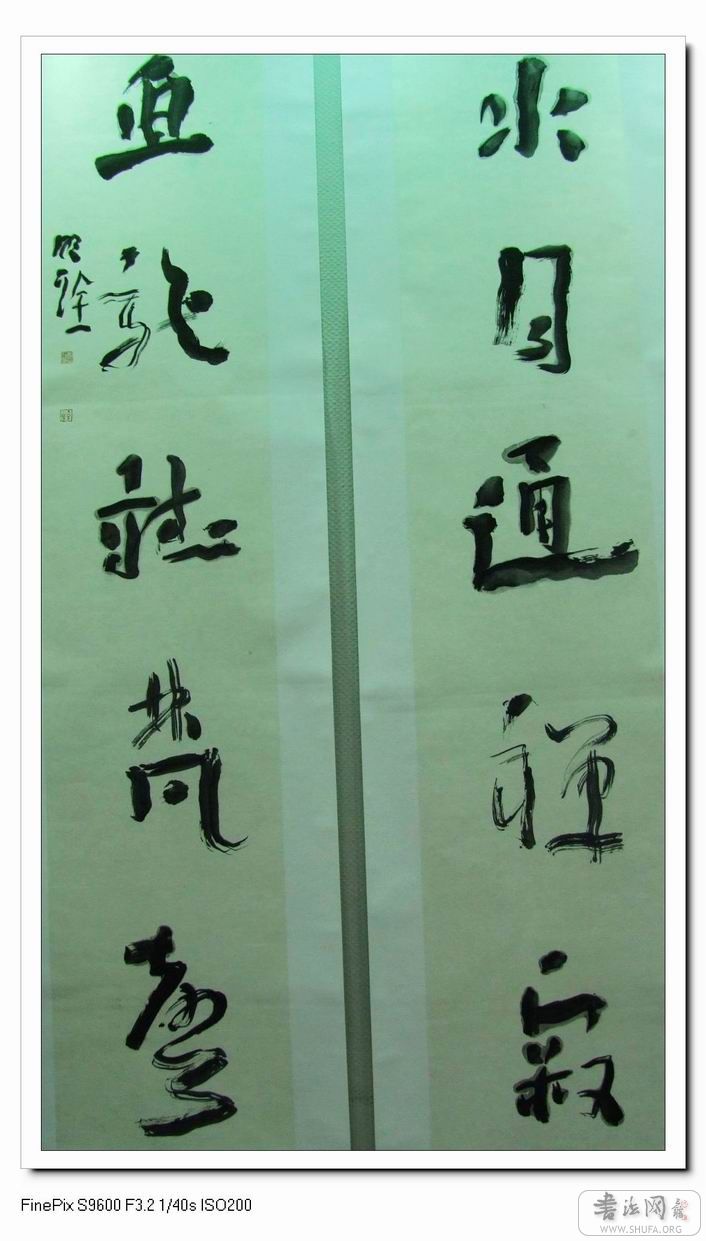 水月通禪寂
魚龍聽梵聲
明詮
FinePix S9600 F3.2 1/40s ISO200
書法网
WWW.SHUFA.ORG